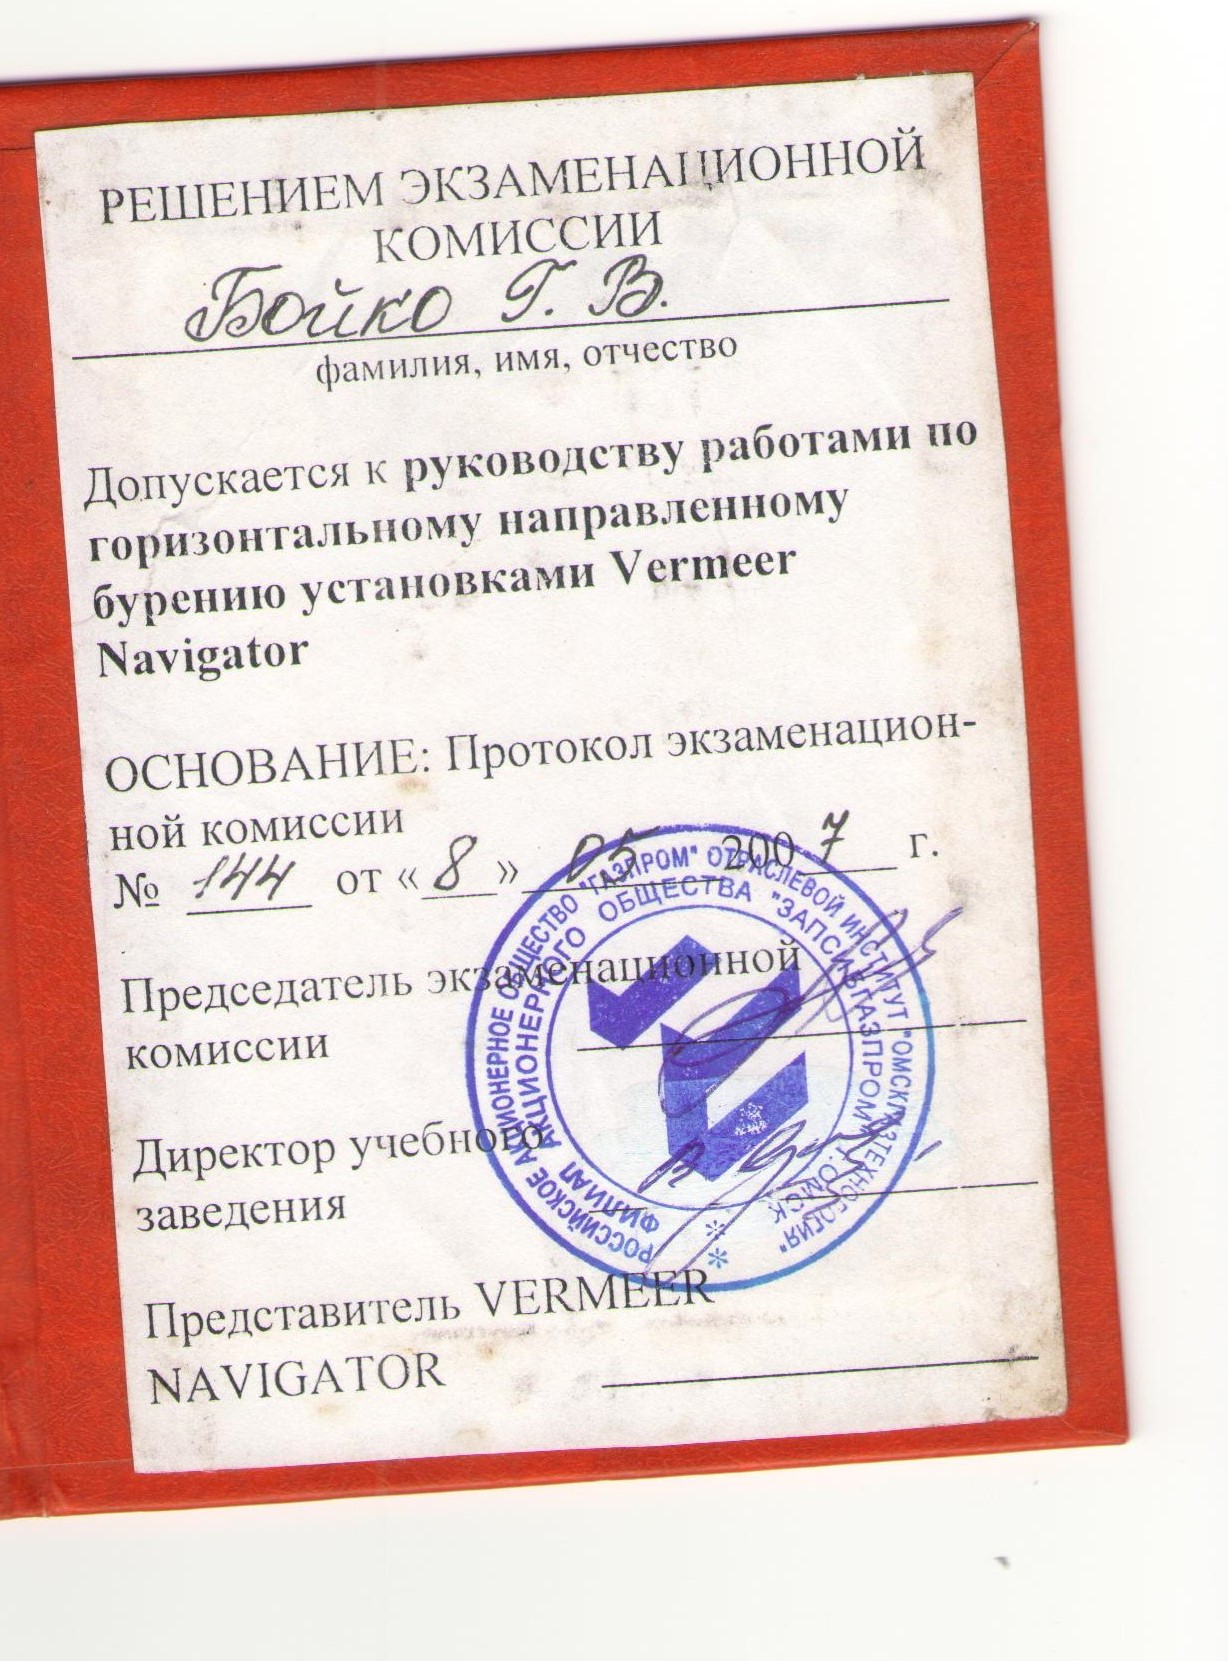 РЕШЕНИЕМ ЭКЗАМЕНАЦИОННОЙ
КОМИССИИ
Бойко Г. В.
фамилия, имя, отчество
Допускается к руководству работами по
горизонтальному направленному
бурению установками Vermeer
Navigator
ОСНОВАНИЕ: Протокол экзаменацион-
ной комиссии
№ 144 от «8» 05 2007 г.
Председатель экзаменационной
комиссии
Директор учебного
заведения
Представитель VERMEER
NAVIGATOR
РОССИЙСКОЕ АКЦИОНЕРНОЕ ОБЩЕСТВО "ГАЗПРОМ" ОТРАСЛЕВОЙ ИНСТИТУТ
ФИЛИАЛ АКЦИОНЕРНОГО ОБЩЕСТВА "ЗАПСИБГАЗПРОМ" Г. ОМСК